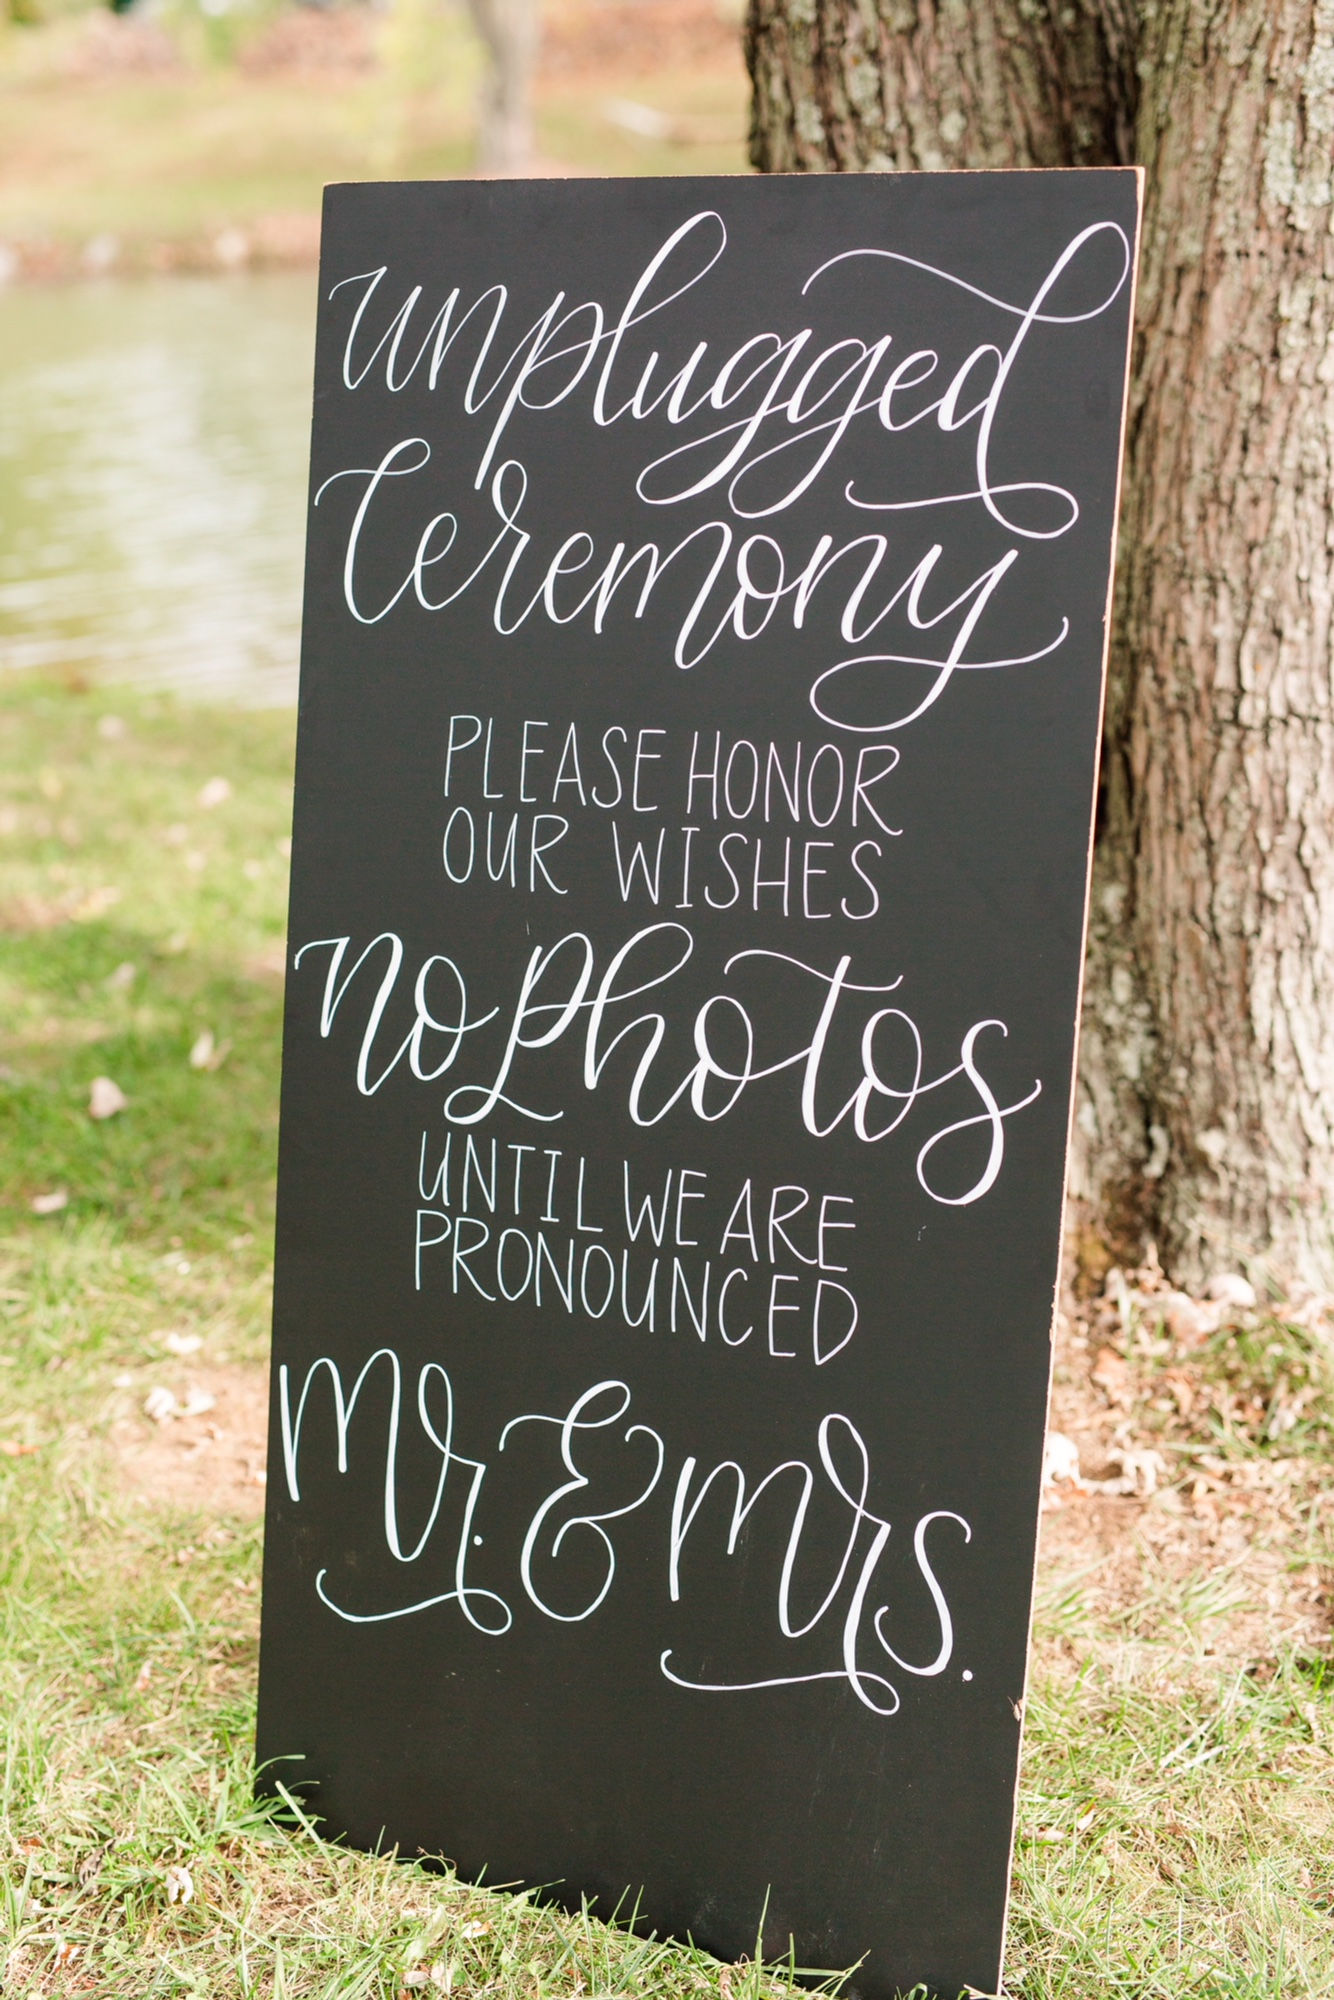 unplugged
Ceremony
PLEASE HONOR
OUR WISHES
no photos
UNTIL WE ARE
PRONOUNCED
Mr. & Mrs.